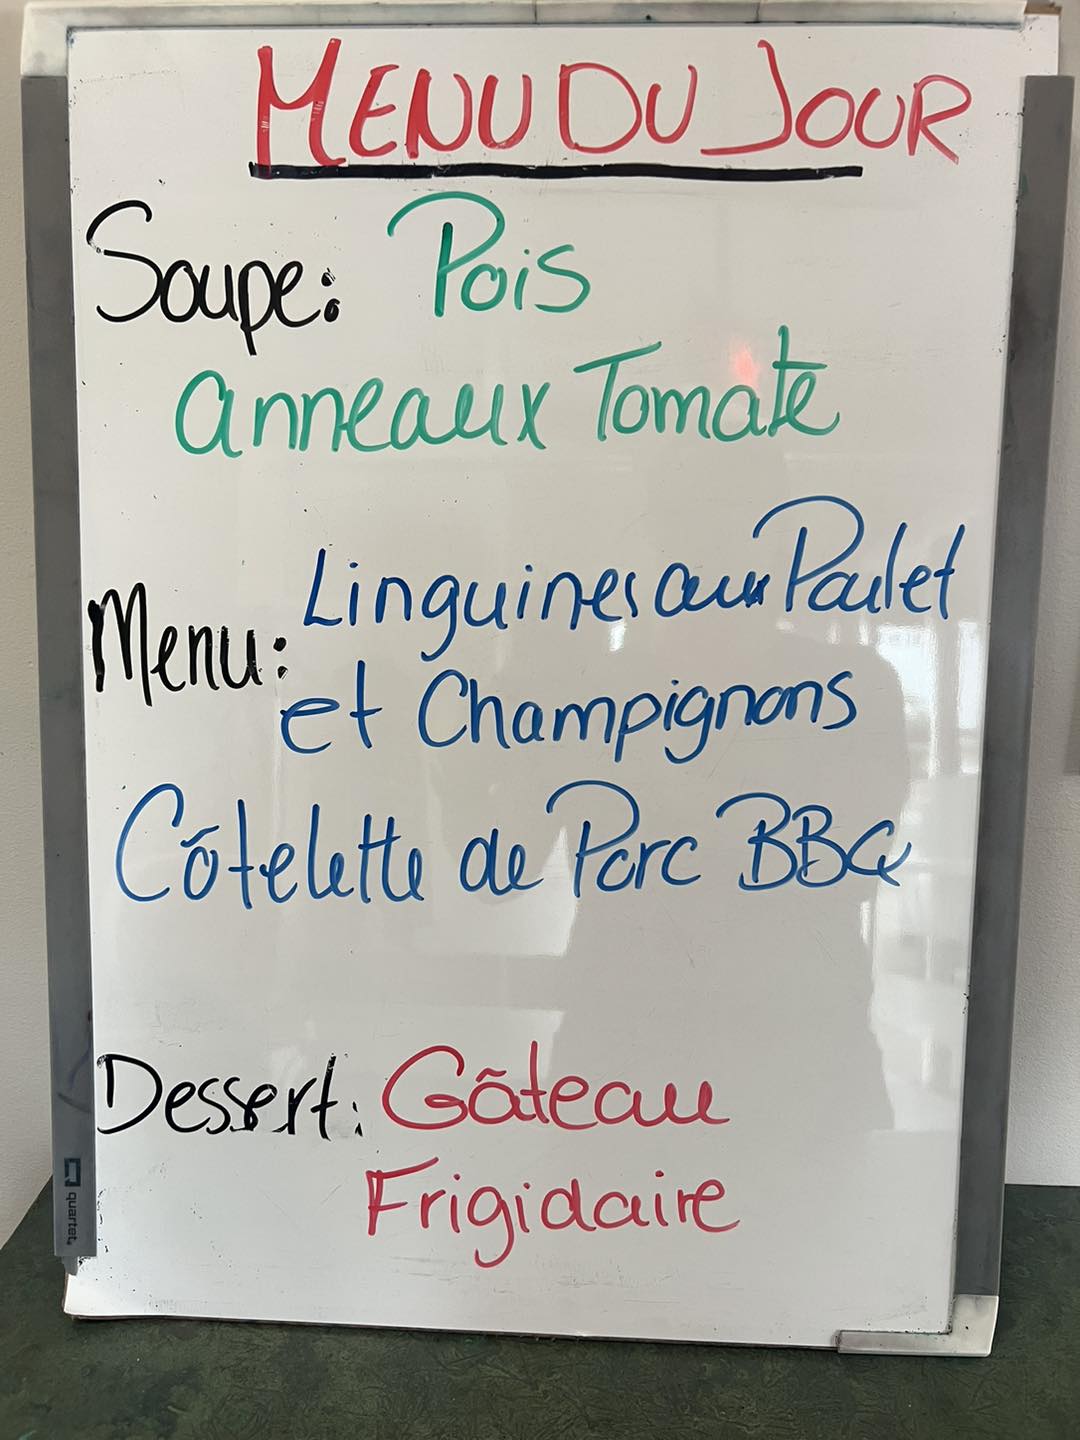 MENU DU JOUR
Soupe: Pois
anneaux Tomate
Linguines aux Poulet
Menu:
et Champignons
Côtelette de Porc BBQ
Dessert: Gâteau
Frigidaire
quartet